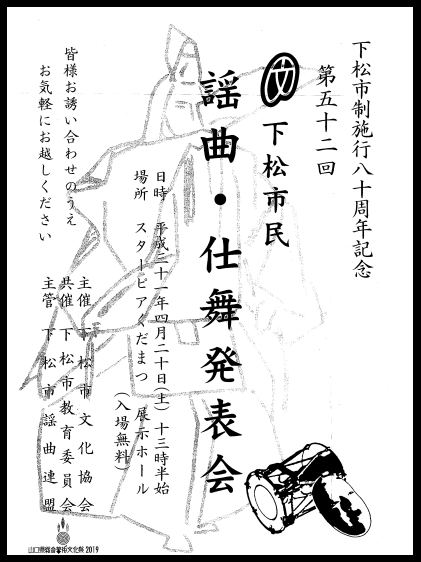 下松市制施行八十周年記念
第五十二回
下松市民
謡曲・仕舞発表会
日時 平成三十一年四月二十日(土) 十三時半始
場所 スターピアくだまつ 展示ホール
(入場無料)
主催 下松市文化協会
共催 下松市教育委員会
主管 下松市謡曲連盟
皆様お誘い合わせのうえ
お気軽にお越しください
山口県総合芸術文化祭2019